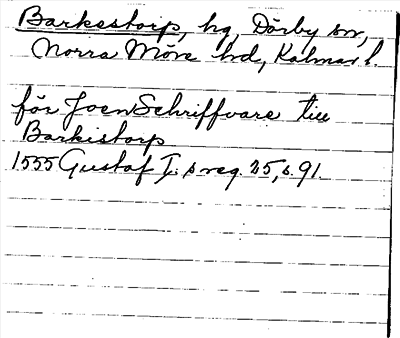 Barkestorp, hg, Dörby sn,
Norra Möre hd, Kalmar l.
för Joen Schriffvare till
Barkistorp
1555 Gustaf I:s reg. 25, s. 91